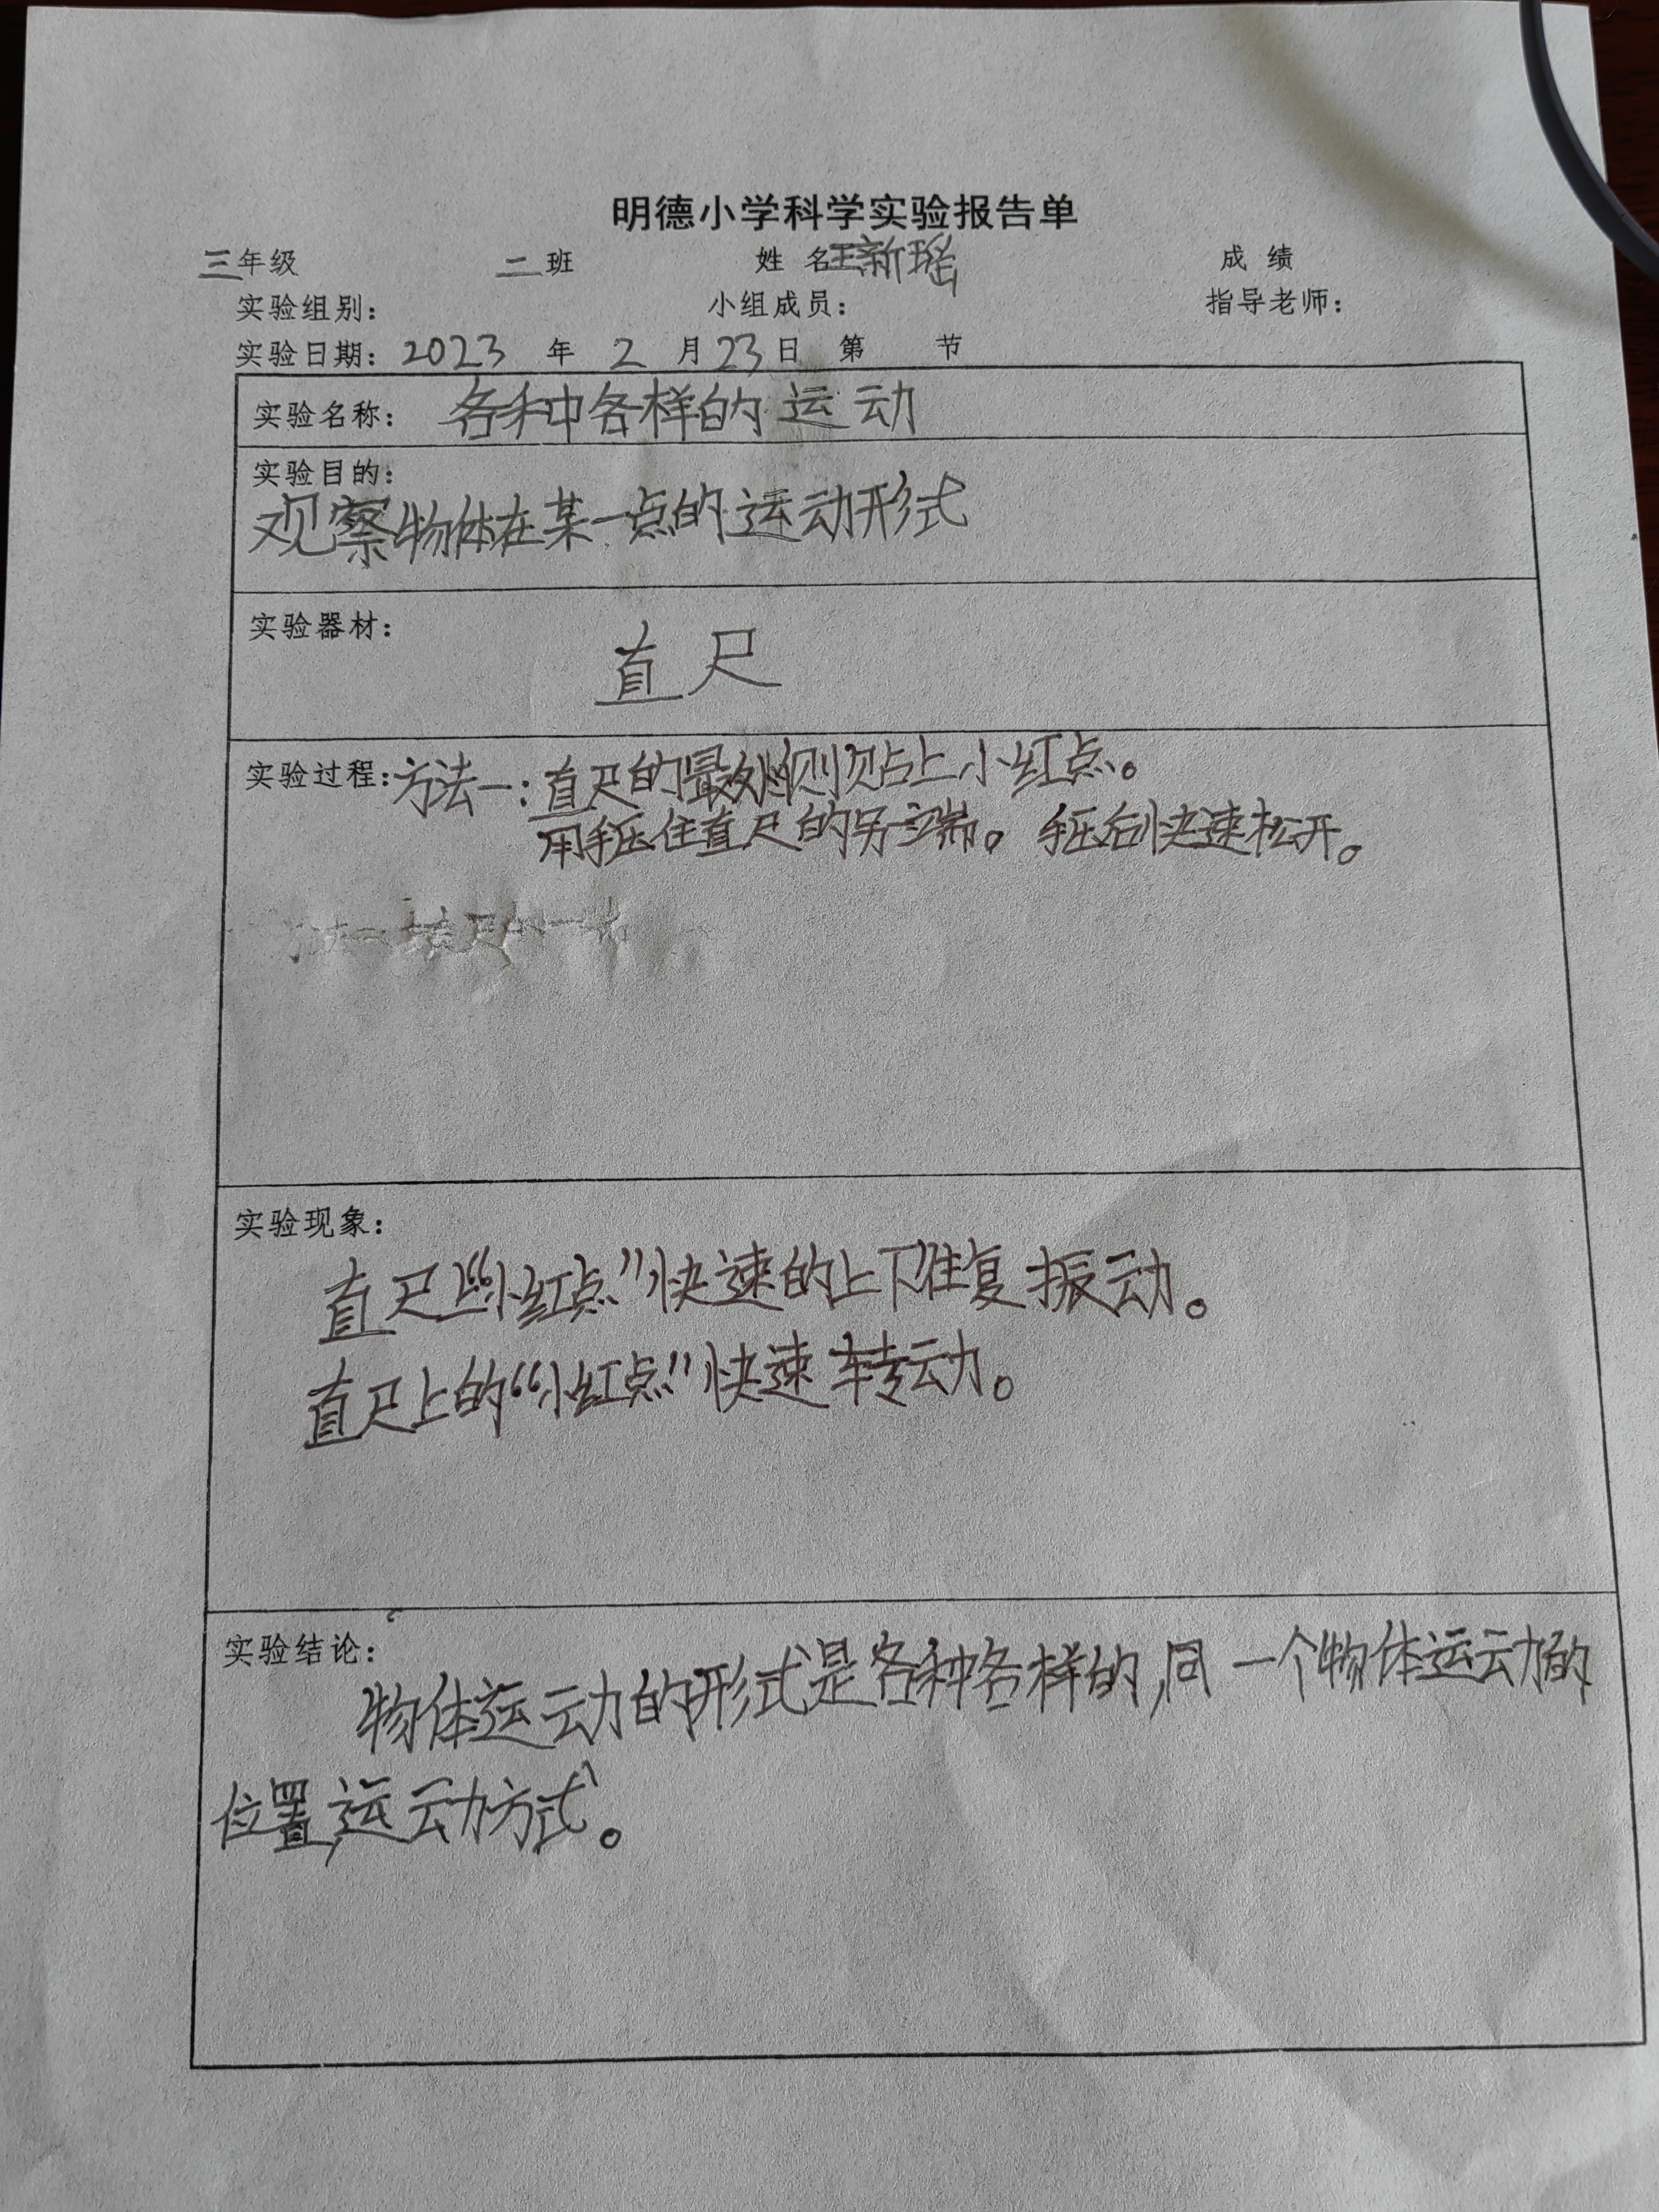 明德小学科学实验报告单
三年级 二班 姓名王新瑶 成绩
实验组别： 小组成员： 指导老师：
实验日期：2023 年 2 月 23 日 第 节
实验名称：各种各样的运动
实验目的：
观察物体在某一点的运动形式
实验器材：
直尺
实验过程：方法一：直尺的最外侧贴上小红点。
用手压住直尺的另一端。手压后快速松开。
实验现象：
直尺上“小红点”快速的上下往复振动。
直尺上的“小红点”快速转动。
实验结论：
物体运动的形式是各种各样的，同一个物体运动的
位置，运动方式。